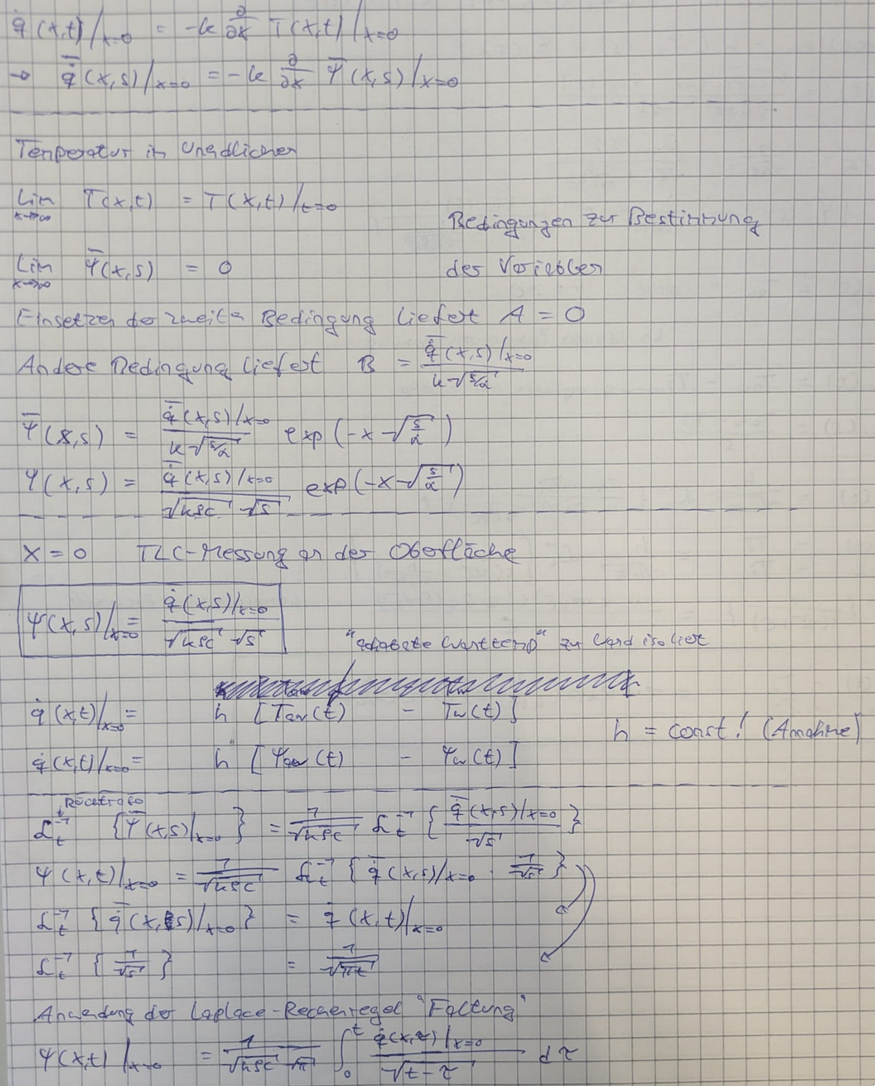 q̇(x,t)|x=0 = -k ∂/∂x T(x,t)|x=0
→ q̇̄(x,s)|x=0 = -k ∂/∂x Ψ̄(x,s)|x=0
Temperatur in Unendlichen
Lim x→∞ T(x,t) = T(x,t)|t=0
Bedingungen zur Bestimmung
Lim x→∞ Ψ̄(x,s) = 0
der Variablen
Einsetzen der zweiten Bedingung liefert A = 0
Andere Bedingung liefert B = q̇̄(x,s)|x=0 / k√(s/α)
Ψ̄(x,s) = q̇̄(x,s)|x=0 / k√(s/α) exp(-x√(s/α))
Ψ(x,s) = q̇̄(x,s)|x=0 / √(kρc) √s exp(-x√(s/α))
x = 0 TLC-Messung an der Oberfläche
Ψ(x,s)|x=0 = q̇(x,s)|x=0 / √(kρc) √s
zu Wand isoliert
q̇(x,t)|x=0 = h [Taw(t) - Tw(t)]
h = const! (Annahme)
q̇(x,t)|x=0 = h [Ψaw(t) - Ψw(t)]
ℒt⁻¹ {Ψ̄(x,s)|x=0} = 1/√(kρc) ℒt⁻¹ {q̇̄(x,s)|x=0 / √s}
Ψ(x,t)|x=0 = 1/√(kρc) ℒt⁻¹ {q̇̄(x,s)|x=0 · 1/√s}
ℒt⁻¹ {q̇̄(x,s)|x=0} = q̇(x,t)|x=0
ℒt⁻¹ {1/√s} = 1/√(πt)
Anwendung der Laplace-Rechenregel "Faltung"
Ψ(x,t)|x=0 = 1/√(kρc) √π ∫₀ᵗ q̇(x,τ)|x=0 / √(t-τ) dτ